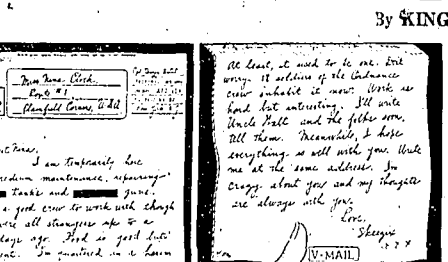 By KING
Miss Nina Clock
Route #1
Plainfull Corners, U.S.A.
Nina,
I am temporarily here
medium maintenance, repairing
tanks and guns.
a good crew to work with though
were all strangers up to a
days ago. Food is good but
I'm quartered in a
At least, it used to be one. Don't
worry. 11 soldiers of the Ordnance
crew inhabit it now. Work is
hard but interesting. I'll write
Uncle Walt and the folks soon.
Tell them. Meanwhile, I hope
everything is well with you. Write
me at the same address. I'm
crazy about you and my thoughts
are always with you.
Love,
Skeezix
x x x
V-MAIL